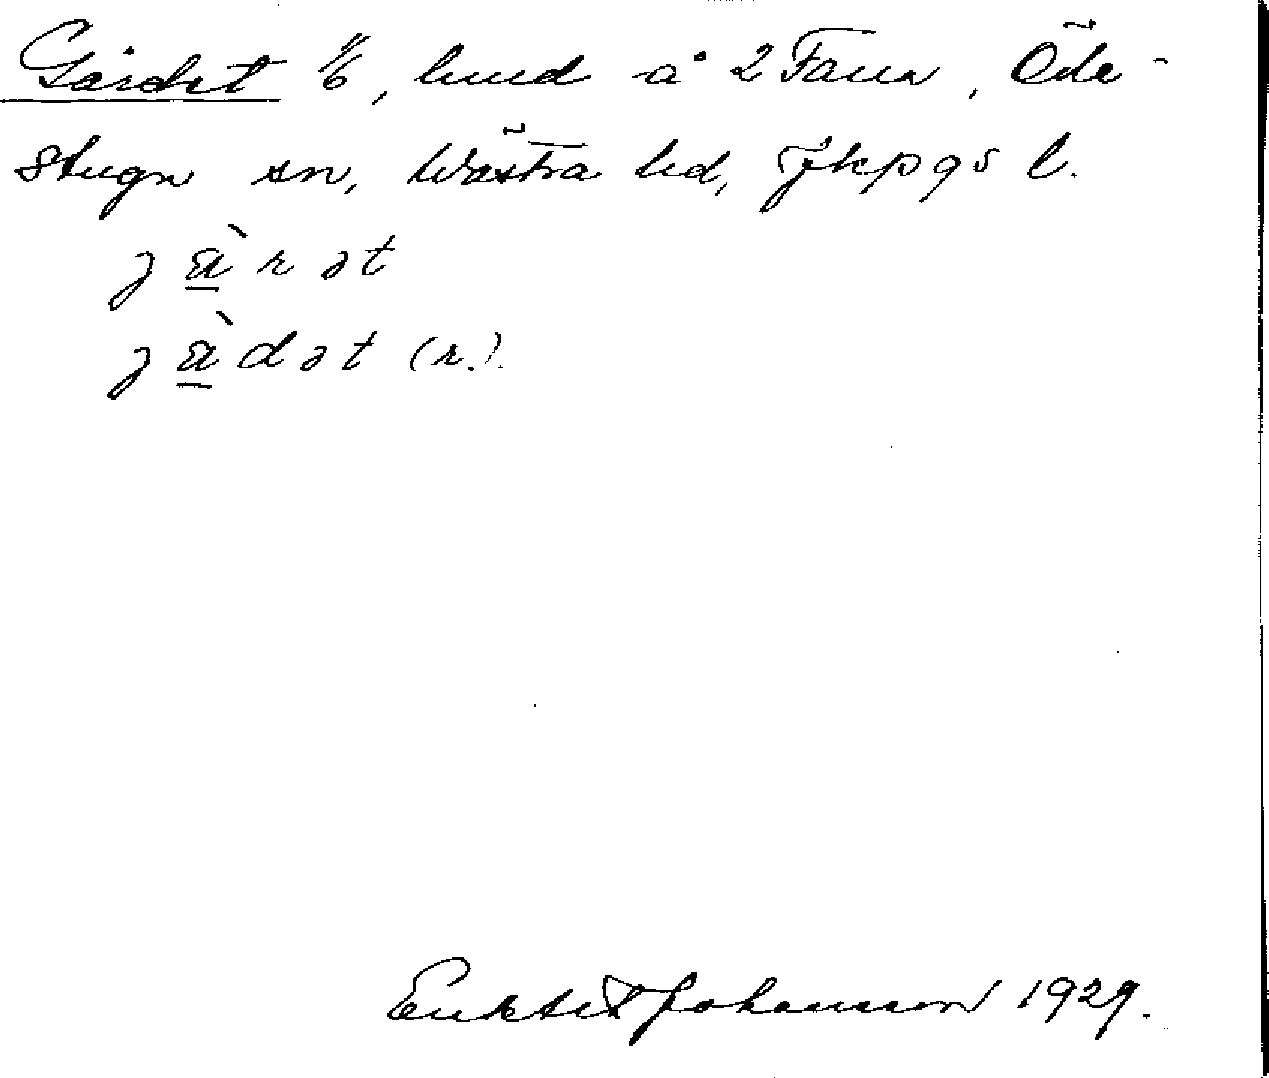 Gärdet 1/6, lund å 2 Fana, Öde-
stugu sn, Västra hd, Jkpgs l.
j ä̀ r ə t
j ä̀ d ə t (r.).
Johansson 1929.